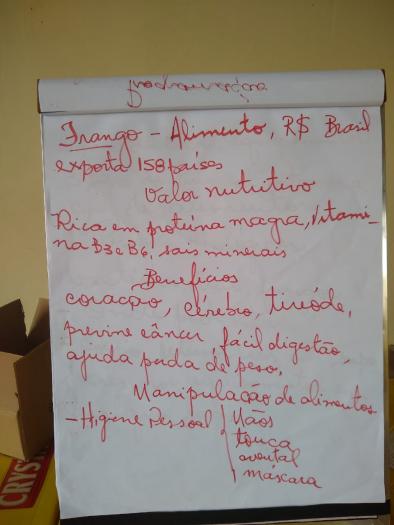 Frango - Alimento, R$ Brasil
exporta 158 países
Valor nutritivo
Rica em proteína magra, Vitami-
na B3 e B6, sais minerais
Benefícios
coração, cérebro, tireóde,
previne câncer, fácil digestão,
ajuda perda de peso.
Manipulação de alimentos
- Higiene Pessoal Mãos
touca
avental
máscara
CRYS